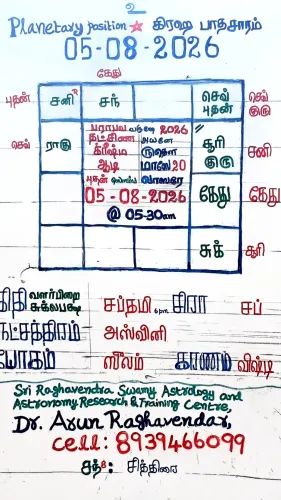 உ
Planetary position ☆ கிரஹ பாதசாரம்
05-08-2026
கேது
புதன் சனி R சந் செவ் புதன் செவ் குரு
செவ் ராகு சூரி குரு சனி
பராபவ வருஷ 2026
தட்சிண அயனே
க்ரீஷ்ம ருதௌ
ஆடி மாஸே 20
புதன் வாஸரே
05-08-2026
@ 05-30am
கேது கேது
சுக் சூரி
திதி வளர்பிறை சுக்லபக்ஷ சப்தமி 6pm சிரா சப்
நட்சத்திரம் அஸ்வினி
யோகம் ஸூலம் கரணம் விஷ்டி
Sri Raghavendra Swamy Astrology and
Astronomy Research & Training Centre,
Dr. Arun Raghavendar,
cell: 8939466099
சித்திரை